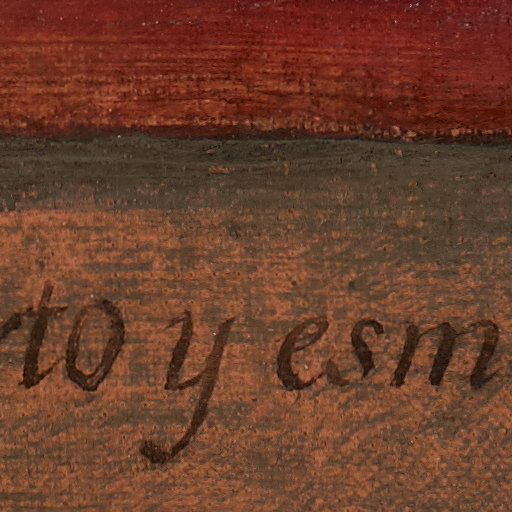 rto y esm